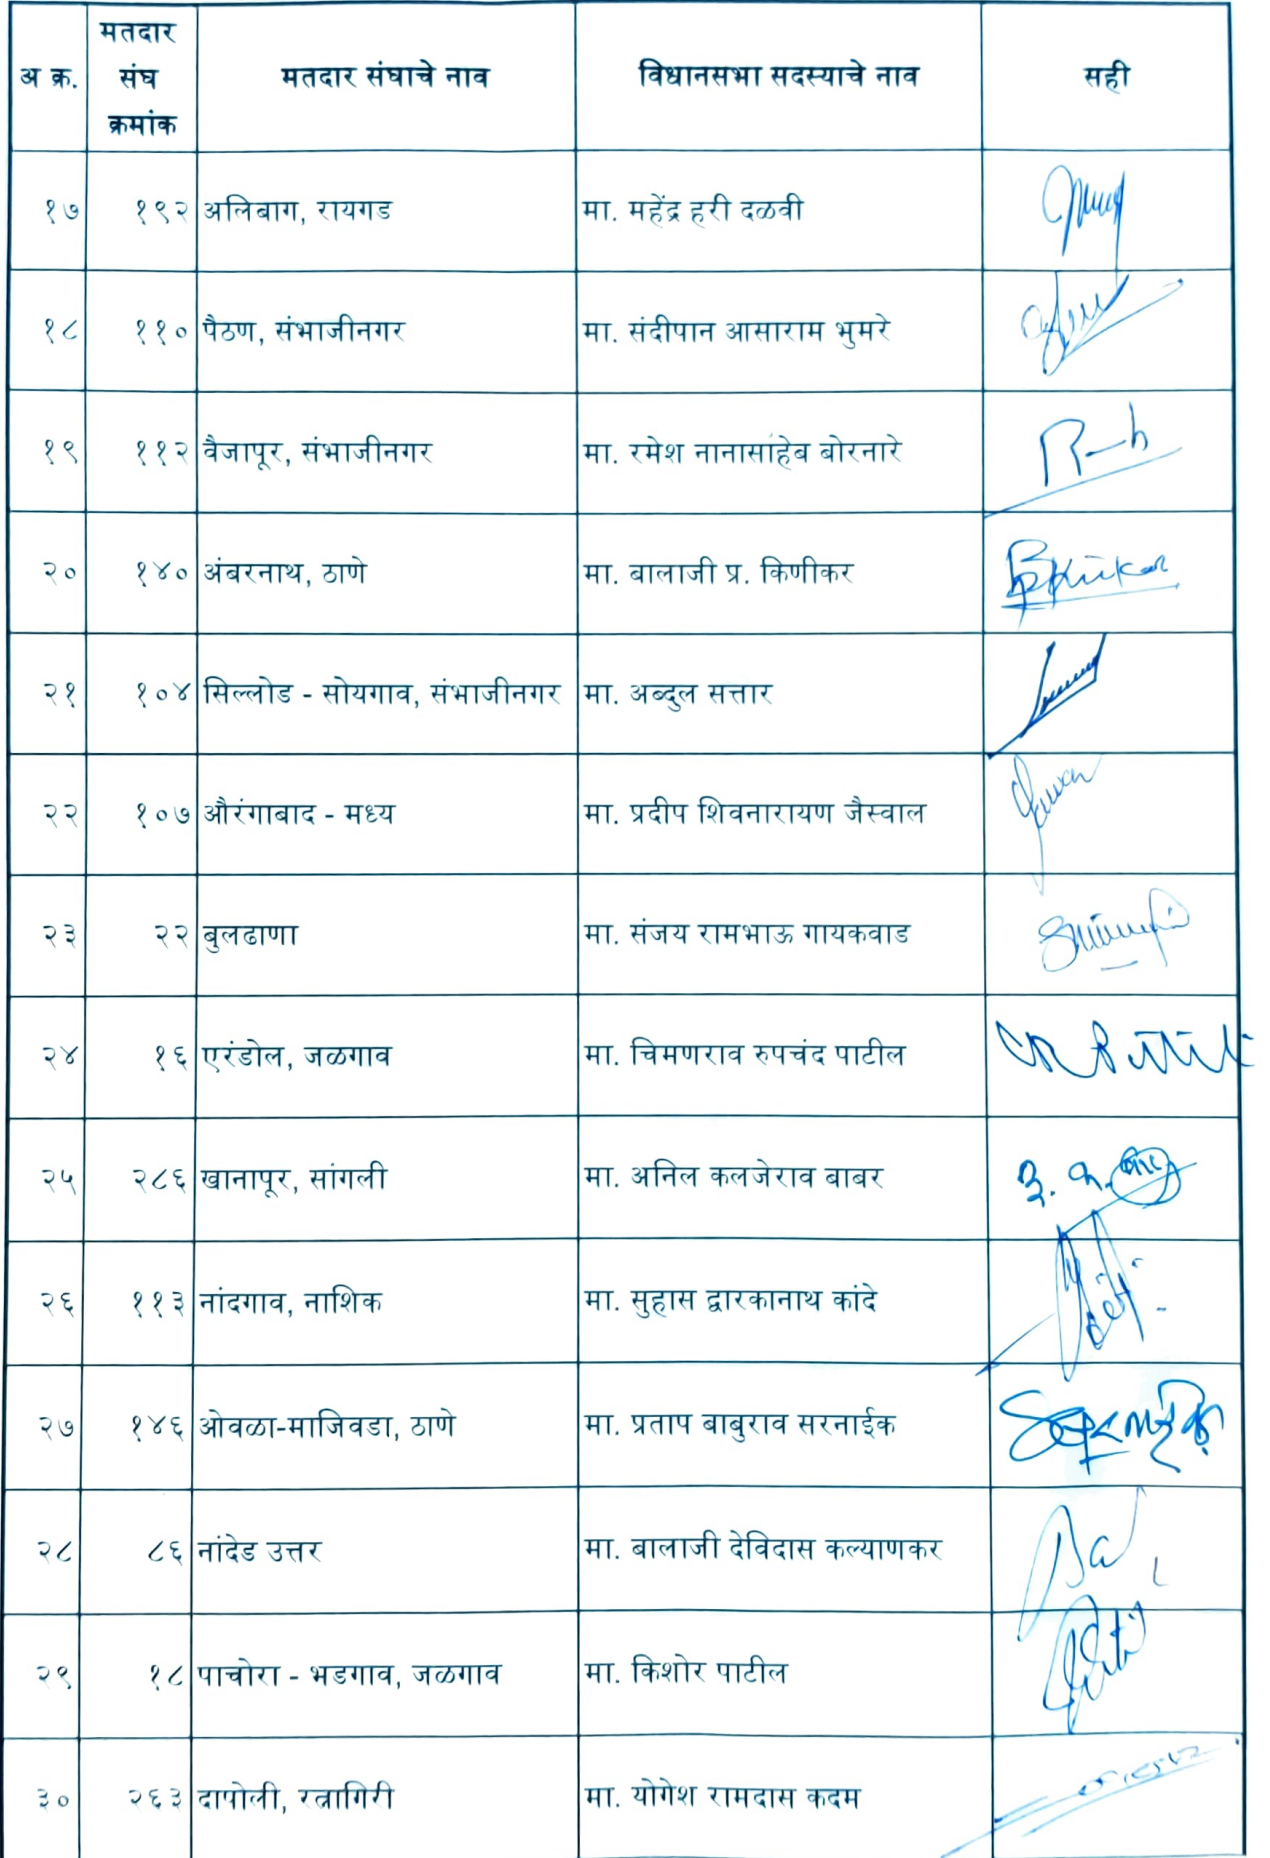 अ क्र. मतदार संघ क्रमांक मतदार संघाचे नाव विधानसभा सदस्याचे नाव सही
१७ १९२ अलिबाग, रायगड मा. महेंद्र हरी दळवी
१८ ११० पैठण, संभाजीनगर मा. संदीपान आसाराम भुमरे
१९ ११२ वैजापूर, संभाजीनगर मा. रमेश नानासाहेब बोरनारे
२० १४० अंबरनाथ, ठाणे मा. बालाजी प्र. किणीकर
२१ १०४ सिल्लोड - सोयगाव, संभाजीनगर मा. अब्दुल सत्तार
२२ १०७ औरंगाबाद - मध्य मा. प्रदीप शिवनारायण जैस्वाल
२३ २२ बुलढाणा मा. संजय रामभाऊ गायकवाड
२४ १६ एरंडोल, जळगाव मा. चिमणराव रुपचंद पाटील
२५ २८६ खानापूर, सांगली मा. अनिल कलजेराव बाबर
२६ ११३ नांदगाव, नाशिक मा. सुहास द्वारकानाथ कांदे
२७ १४६ ओवळा-माजिवडा, ठाणे मा. प्रताप बाबुराव सरनाईक
२८ ८६ नांदेड उत्तर मा. बालाजी देविदास कल्याणकर
२९ १८ पाचोरा - भडगाव, जळगाव मा. किशोर पाटील
३० २६३ दापोली, रत्नागिरी मा. योगेश रामदास कदम